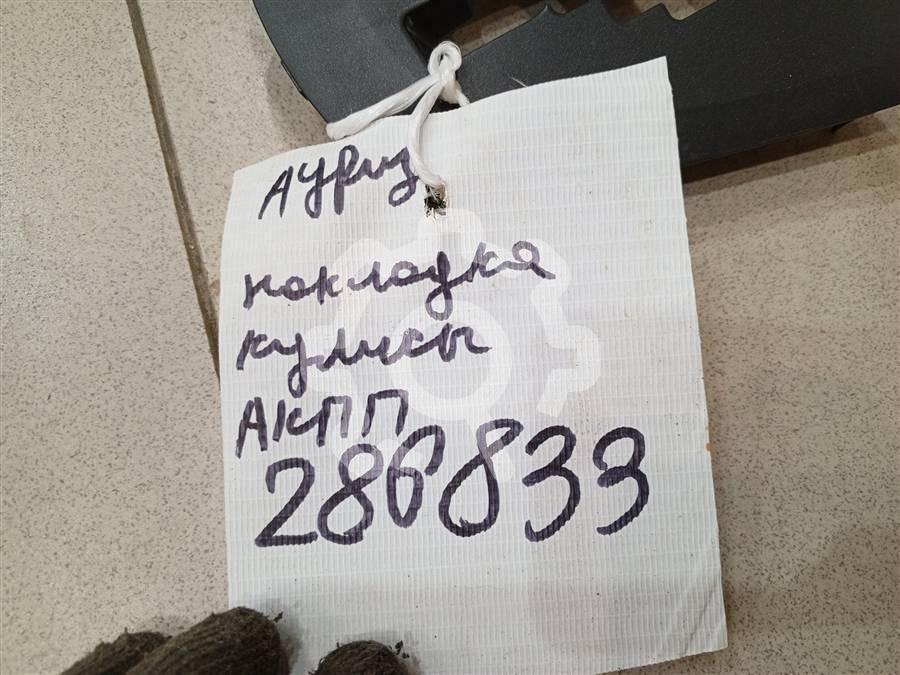 Аурис
накладка
кулисы
АКПП
286833